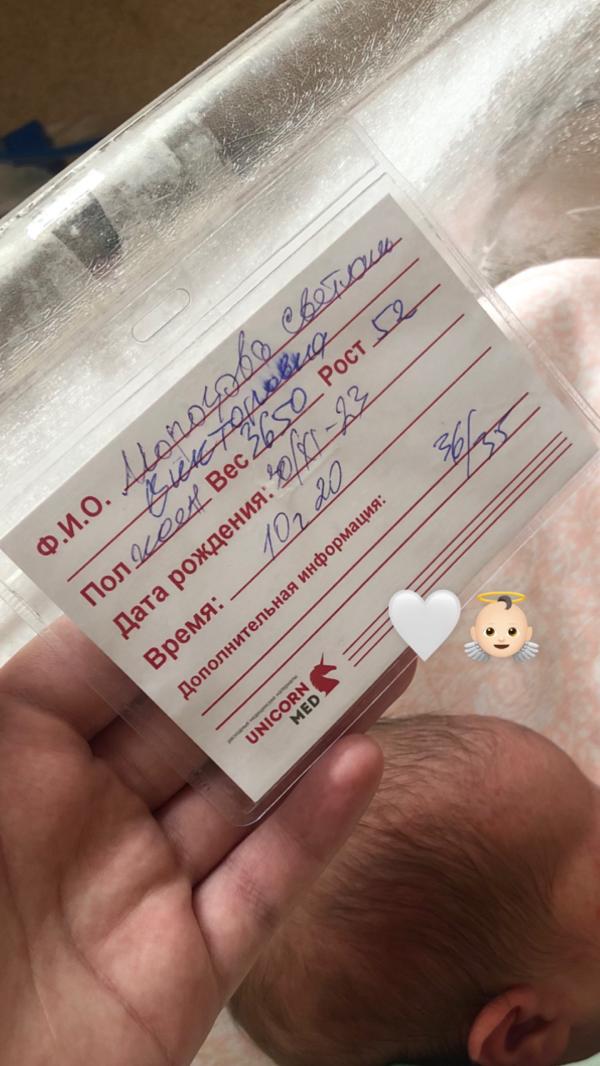 Ф.И.О. Светлана
Викторовна
Пол жен Вес 3650 Рост 52
Дата рождения: 30/XI-23
Время: 10ч 20
36/35
Дополнительная информация:
UNICORN
MED